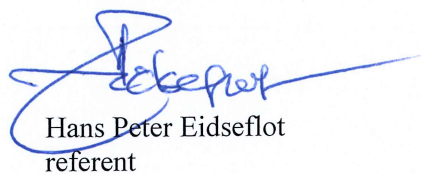 Hans Peter Eidseflot
referent